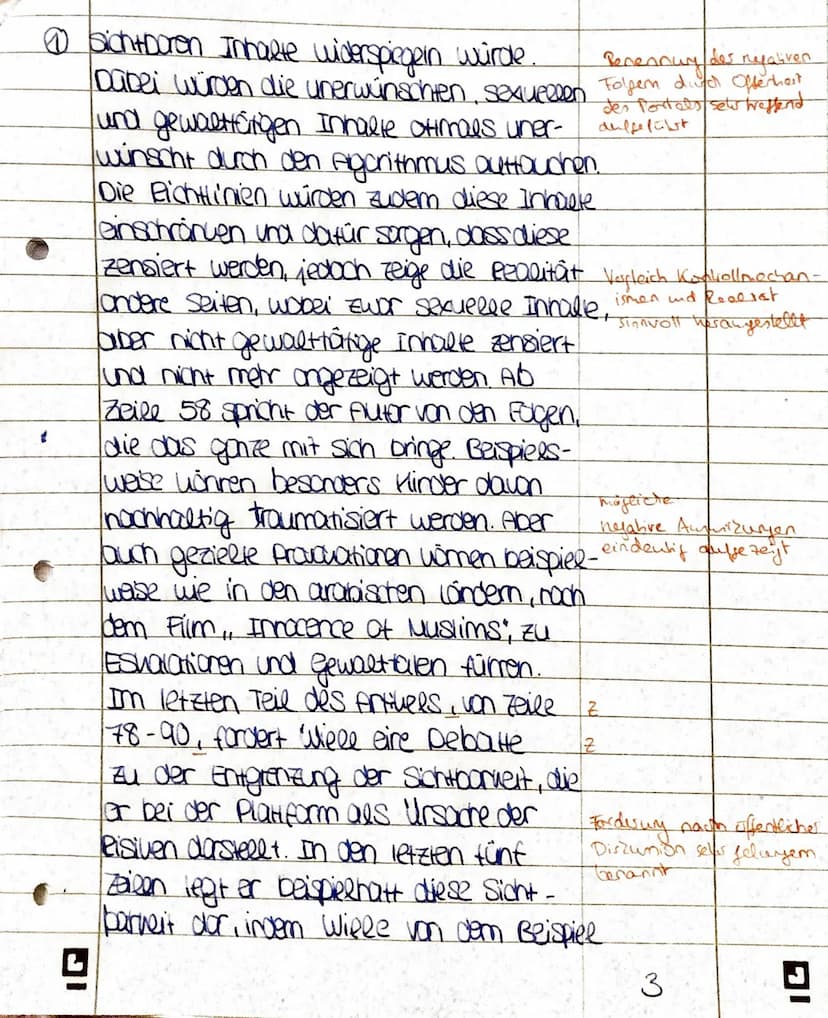 ① sichtbaren Inhalte widerspiegeln würde.
Dabei würden die unerwünschten, sexuellen
und gewalttätigen Inhalte oftmals uner-
wünscht durch den Algorithmus auftauchen.
Die Richtlinien würden zudem diese Inhalte
einschränken und dafür sorgen, dass diese
zensiert werden, jedoch zeige die Realität
andere Seiten, wobei zwar sexuelle Inhalte,
aber nicht gewalttätige Inhalte zensiert
und nicht mehr angezeigt werden. Ab
Zeile 58 spricht der Autor von den Folgen,
die das ganze mit sich bringe. Beispiels-
weise können besonders Kinder davon
nachhaltig traumatisiert werden. Aber
auch gezielte Provokationen können beispiel-
weise wie in den arabischen Ländern, nach
dem Film „Innocence of Muslims", zu
Eskalationen und Gewalttaten führen.
Im letzten Teil des Artikels, von Zeile
78-90, fordert Wiele eine Debatte
zu der Entgrenzung der Sichtbarkeit, die
er bei der Plattform als Ursache der
Risiken darstellt. In den letzten fünf
Zeilen legt er beispielhaft diese Sicht-
barkeit dar, indem Wiele von dem Beispiel
Benennung des negativen
Folgern durch Offenheit
des Portals sehr treffend
aufgeführt
Vergleich Kontrollmechan-
ismen und Realität
sinnvoll herausgestellt
mögliche
negative Auswirkungen
eindeutig aufgezeigt
Z
Z
Forderung nach öffentlicher
Diskussion sehr gelungen
benannt
3